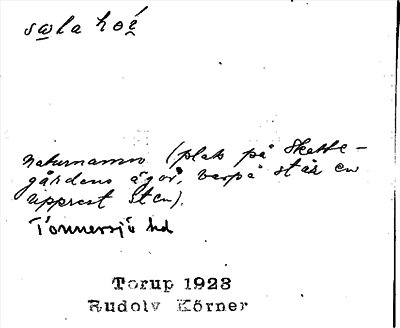 swla hoé
Naturnamn (plats på Skatte-
gårdens ägor, varpå står en
upprest sten).
Tönnersjö hd
Torup 1928
Rudolv Körner